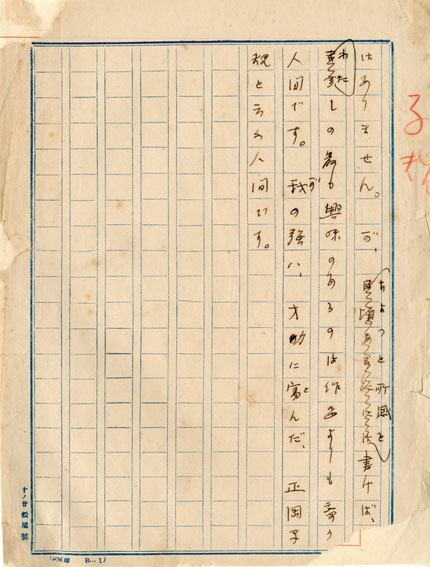 子規
はありません。が、ちよつと所感を書けば、
わたしの最も興味のあるのは作品よりも寧ろ
人間です。我の強い、才に富んだ、正岡子
規と云ふ人間です。
十ノ廿 松屋製